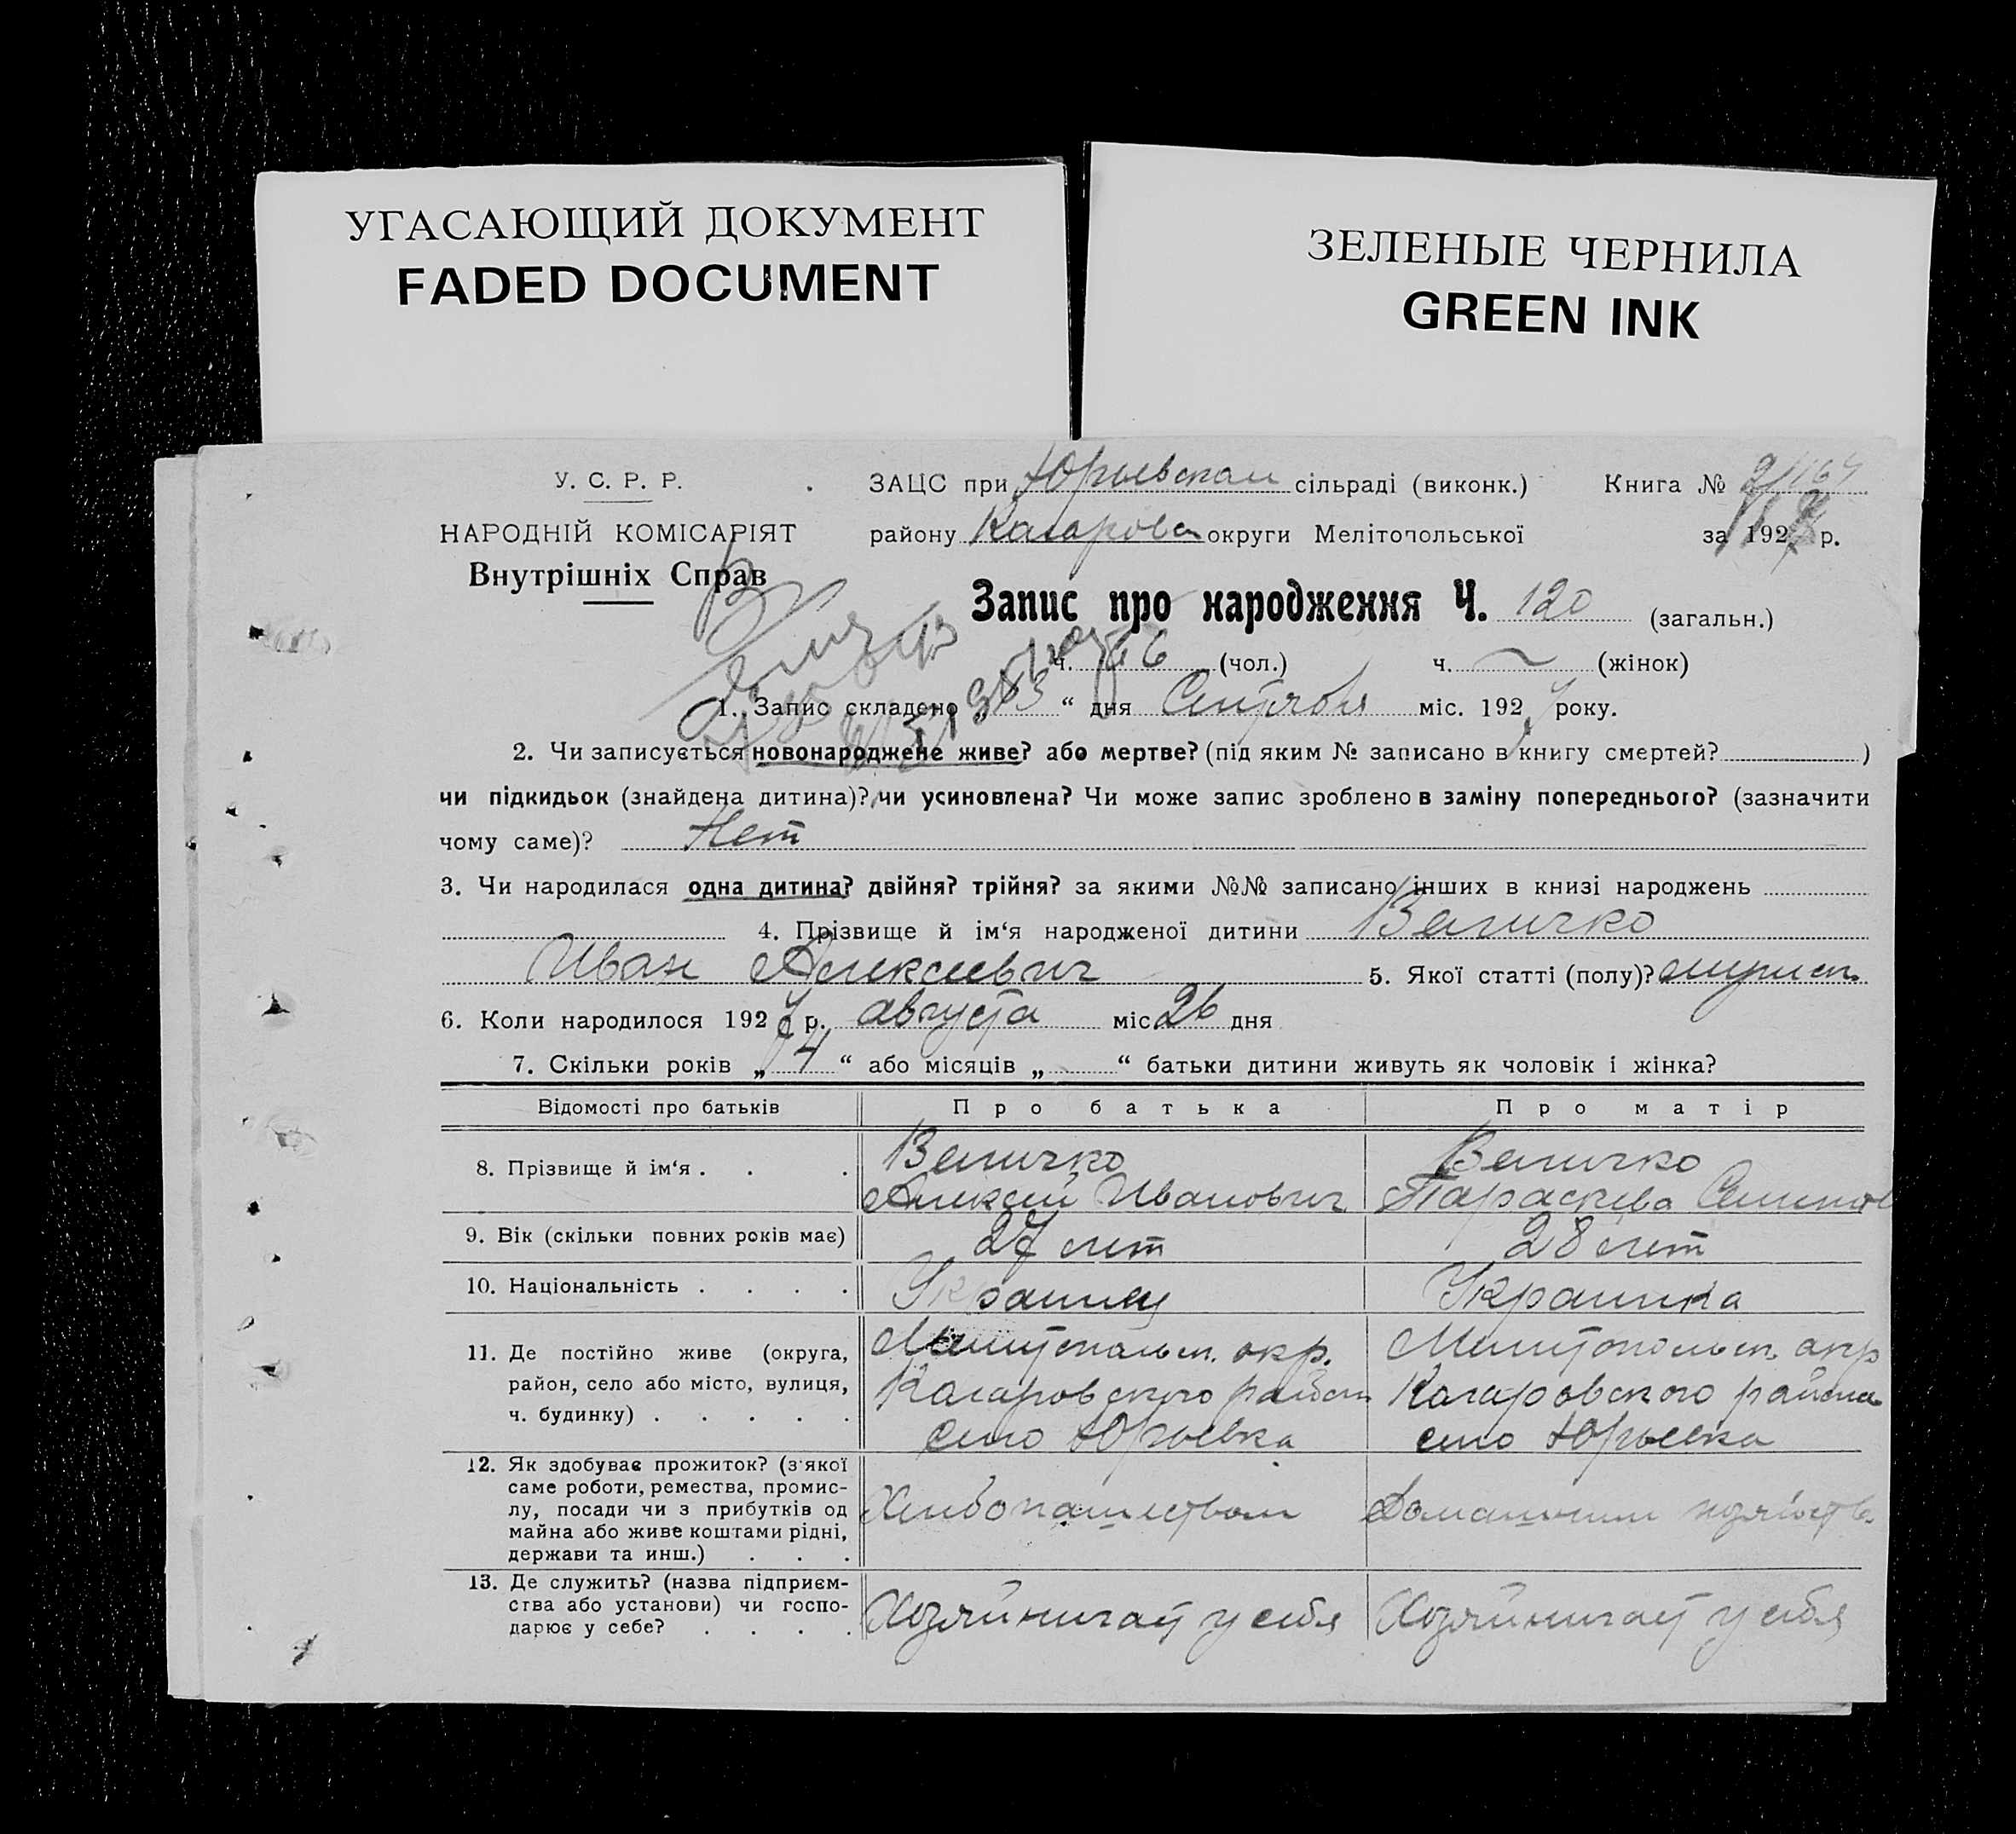 УГАСАЮЩИЙ ДОКУМЕНТ
FADED DOCUMENT
ЗЕЛЕНЫЕ ЧЕРНИЛА
GREEN INK
У. С. Р. Р.
НАРОДНІЙ КОМІСАРІЯТ
Внутрішніх Справ
ЗАЦС при Юрьевском сільраді (виконк.) Книга №
району округи Мелітопольської за 192 р.
Запис про народження Ч. 120 (загальн.)
ч. 66 (чол.) ч. — (жінок)
1. Запис складено „ “ дня Сентября міс. 192 року.
2. Чи записується новонароджене живе? або мертве? (під яким № записано в книгу смертей? )
чи підкидьок (знайдена дитина)? чи усиновлена? Чи може запис зроблено в заміну попереднього? (зазначити
чому саме)? Нет
3. Чи народилася одна дитина? двійня? трійня? за якими №№ записано інших в книзі народжень
4. Прізвище й ім‘я народженої дитини Величко
Иван Алексеевич 5. Якої статті (полу)?
6. Коли народилося 192 р. августа міс 26 дня
7. Скільки років „ 4 “ або місяців „ “ батьки дитини живуть як чоловік і жінка?
Відомості про батьків Про батька Про матір
8. Прізвище й ім‘я . . . Величко Величко
Алексей Иванович Параскева
9. Вік (скільки повних років має) 27 лет 28 лет
10. Національність . . . . Украинец Украинка
11. Де постійно живе (округа, Мелитопольск. окр. Мелитопольск. окр
район, село або місто, вулиця, района района
ч. будинку) . . . . . село Юрьевка село Юрьевка
12. Як здобуває прожиток? (з'якої
саме роботи, ремества, промис-
лу, посади чи з прибутків од Хлибопашеством Домашним
майна або живе коштами рідні,
держави та инш.) . . .
13. Де служить? (назва підприєм-
ства або установи) чи госпо- Хозяйничает у себя Хозяйничает у себя
дарює у себе? . . . .